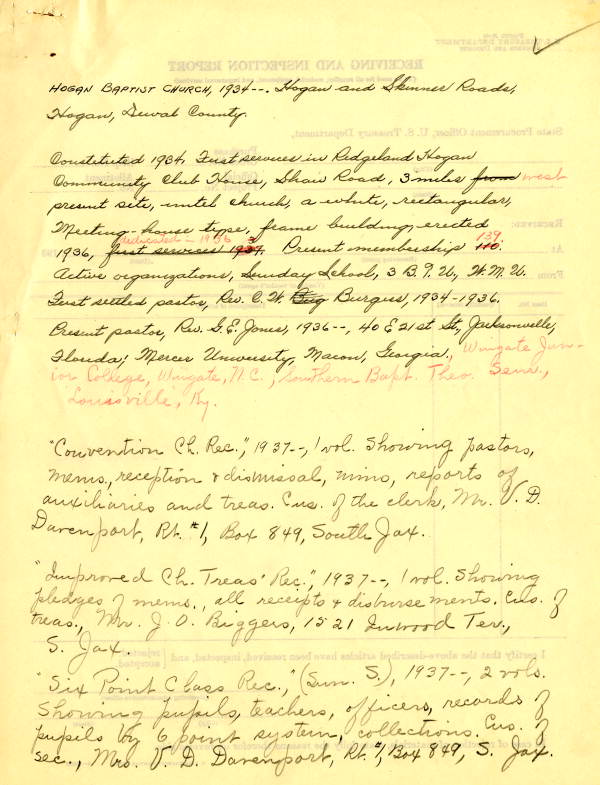 HOGAN BAPTIST CHURCH, 1934--. Hogan and Skinner Roads,
Hogan, Duval County.
Constituted 1934, First services in Ridgeland Hogan
Community Club House, Shaw Road, 3 miles from west
present site, until church, a white, rectangular,
Meeting-house type, frame building, erected
dedicated in 1936 139
1936, first services 1937. Present membership 110.
Active organizations, Sunday School, 3 B.Y.U., W.M.U.
First settled pastor, Rev. C. W. Bug Burgess, 1934-1936.
Present pastor, Rev. G. E. Jones, 1936--, 40 E 21st St., Jacksonville,
Florida; Mercer University, Macon, Georgia., Wingate Jun-
ior College, Wingate, N.C., Southern Bapt. Theo. Sem.,
Louisville, Ky.
"Convention Ch. Rec.", 1937--, 1 vol. Showing pastors,
mems., reception & dismissal, mins, reports of
auxiliaries and treas. Cus. of the clerk, Mr. V. D.
Davenport, Rt. #1, Box 849, South Jax.
"Improved Ch. Treas' Rec.", 1937--, 1 vol. Showing
pledges of mems., all receipts & disbursements. Cus. of
treas., Mr. J. O. Biggers, 1521 Inwood Ter.,
S. Jax.
"Six Point Class Rec.," (Sun. S.), 1937--, 2 vols.
Showing pupils, teachers, officers, records of
pupils by 6 point system, collections. Cus. of
sec., Mrs. V. D. Davenport, Rt. #1, Box 849, S. Jax.
RECEIVING AND INSPECTION REPORT
State Procurement Officer, U. S. Treasury Department,
I certify that the above-described articles have been received, inspected, and